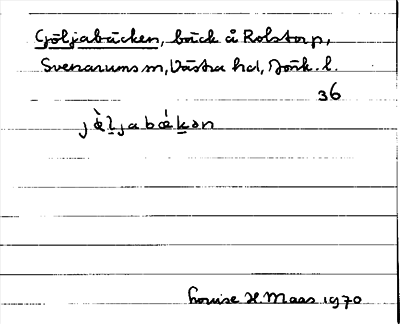 Göljabäcken, bäck å Rolstorp,
Svenarums sn, Västra hd, Jönk. l.
36
jæ̀l̠jabǽk̠ən
Louise H Maas 1970